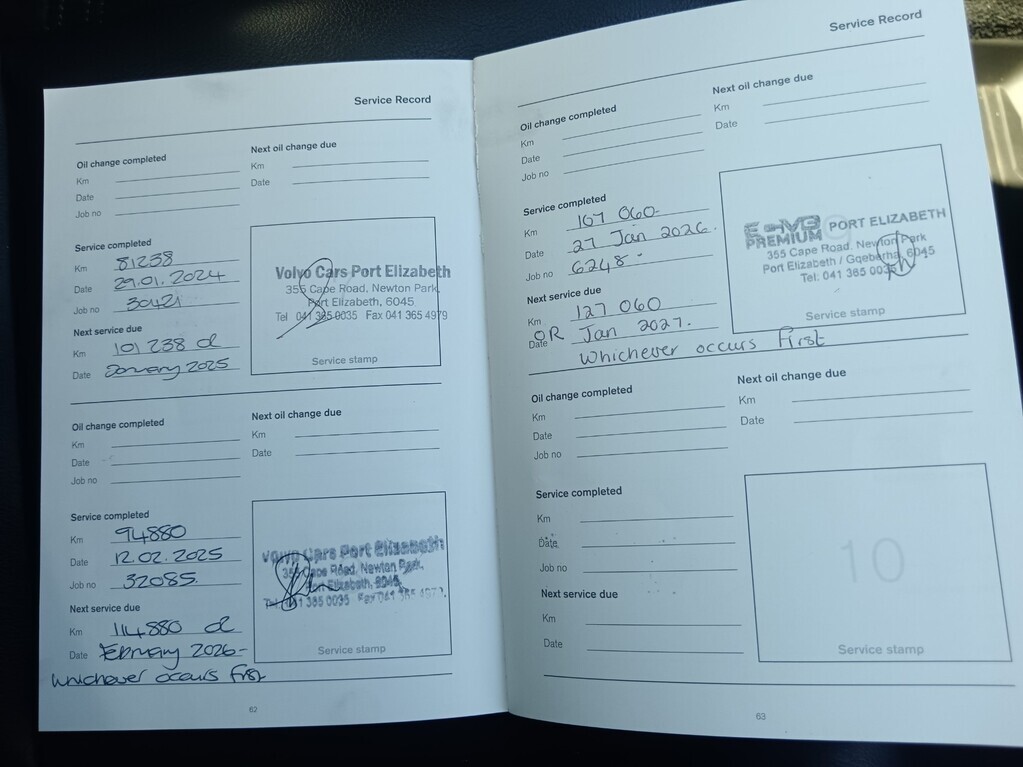 Service Record
Oil change completed
Km
Date
Job no
Next oil change due
Km
Date
Service completed
Km 81238
Date 29.01.2024
Job no 30421
Next service due
Km 101 238 or
Date January 2025
Volvo Cars Port Elizabeth
355 Cape Road, Newton Park,
Port Elizabeth, 6045
Tel 041 365 0035 Fax 041 365 4979
Service stamp
Oil change completed
Km
Date
Job no
Next oil change due
Km
Date
Service completed
Km 94880
Date 12.02.2025
Job no 32085
Next service due
Km 114880 or
Date February 2026-
whichever occurs first
Volvo Cars Port Elizabeth
355 Cape Road, Newton Park,
Port Elizabeth, 6045
Tel 041 365 0035 Fax 041 365 4979
Service stamp
62
Service Record
Oil change completed
Km
Date
Job no
Next oil change due
Km
Date
Service completed
Km 107 060
Date 27 Jan 2026.
Job no 6248-
Next service due
Km 127 060
OR
Date Jan 2027.
whichever occurs first
PREMIUM PORT ELIZABETH
355 Cape Road, Newton Park
Port Elizabeth / Gqeberha, 6045
Tel: 041 365 0035
9
Service stamp
Oil change completed
Km
Date
Job no
Next oil change due
Km
Date
Service completed
Km
Date
Job no
Next service due
Km
Date
10
Service stamp
63